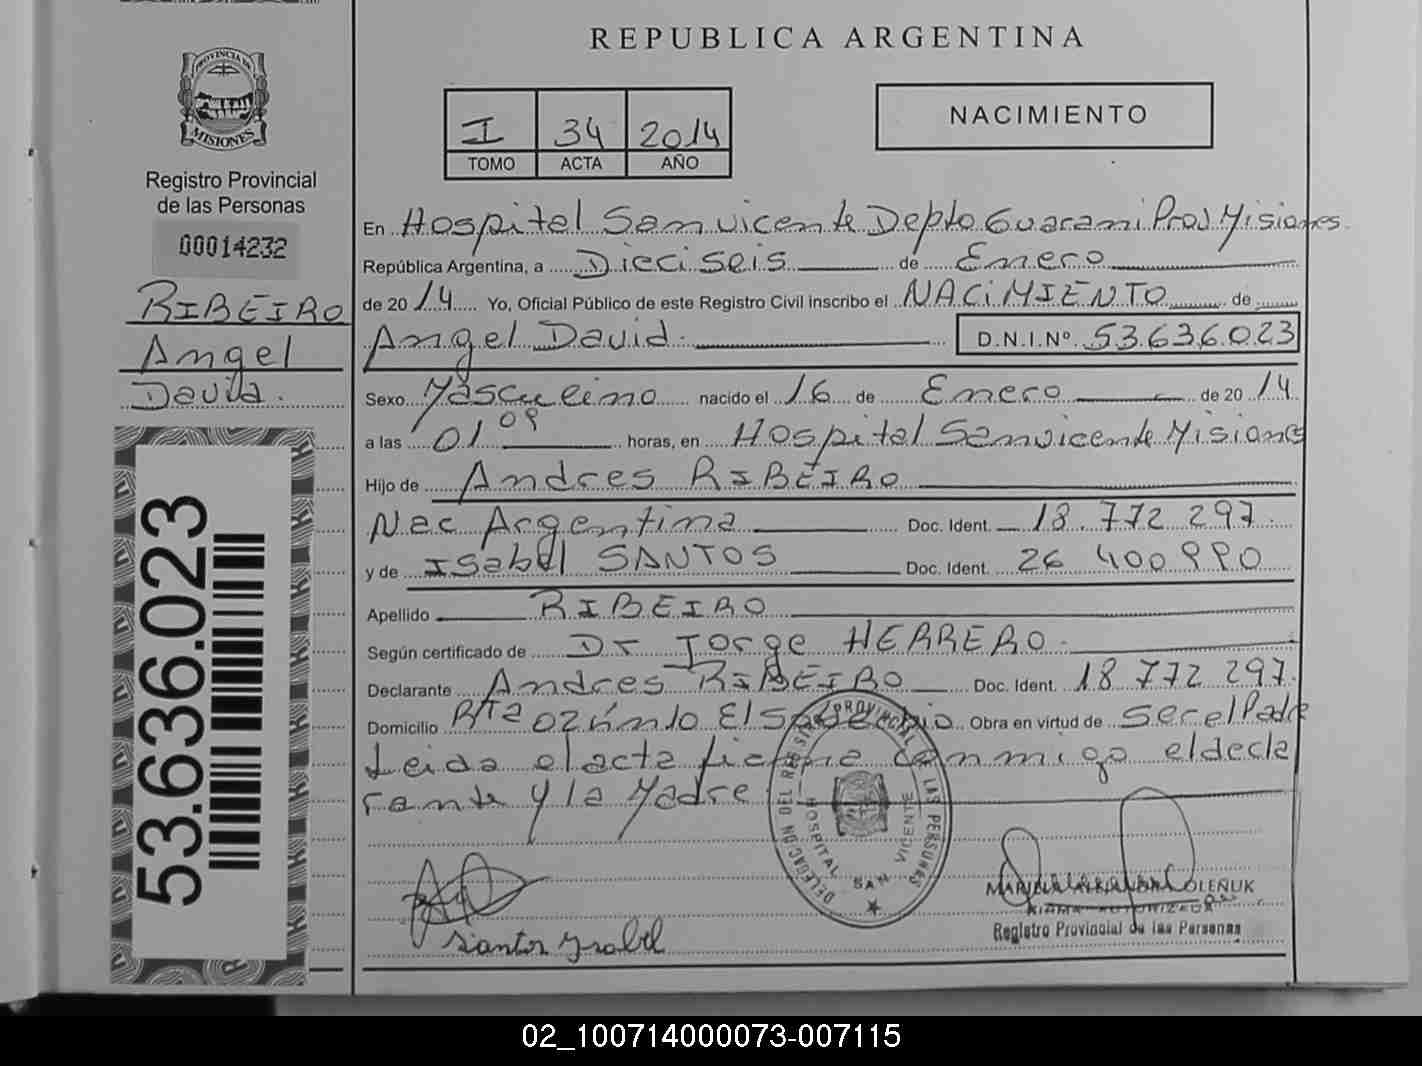 REPUBLICA ARGENTINA
PROVINCIA DE
MISIONES
Registro Provincial
de las Personas
00014232
RIBEIRO
Angel
David.
53.636.023
I 34 2014
TOMO ACTA AÑO
NACIMIENTO
En Hospital San vicente Depto Guarani Prov Misiones
República Argentina, a Dieciseis de Enero
de 2014 Yo, Oficial Público de este Registro Civil inscribo el NACIMIENTO de
Angel David. D.N.I.Nº. 53.636.023
Sexo Masculino nacido el 16 de Enero de 2014
a las 01 09 horas, en Hospital San vicente Misiones
Hijo de Andres RIBEIRO
Nac Argentina Doc. Ident. 18 772 297.
y de Isabel SANTOS Doc. Ident. 26 400 990
Apellido RIBEIRO
Según certificado de Dr Jorge HERRERO.
Declarante Andres RIBEIRO Doc. Ident. 18 772 297.
Domicilio El Obra en virtud de Ser el Padre
Leida el acta firma conmigo el decla
rante y la Madre
DELEGACION DEL REGISTRO PROVINCIAL DE LAS PERSONAS
HOSPITAL SAN VICENTE
Santos Ysabel
OLEÑUK
FIRMA AUTORIZADA
Registro Provincial de las Personas
02_100714000073-007115